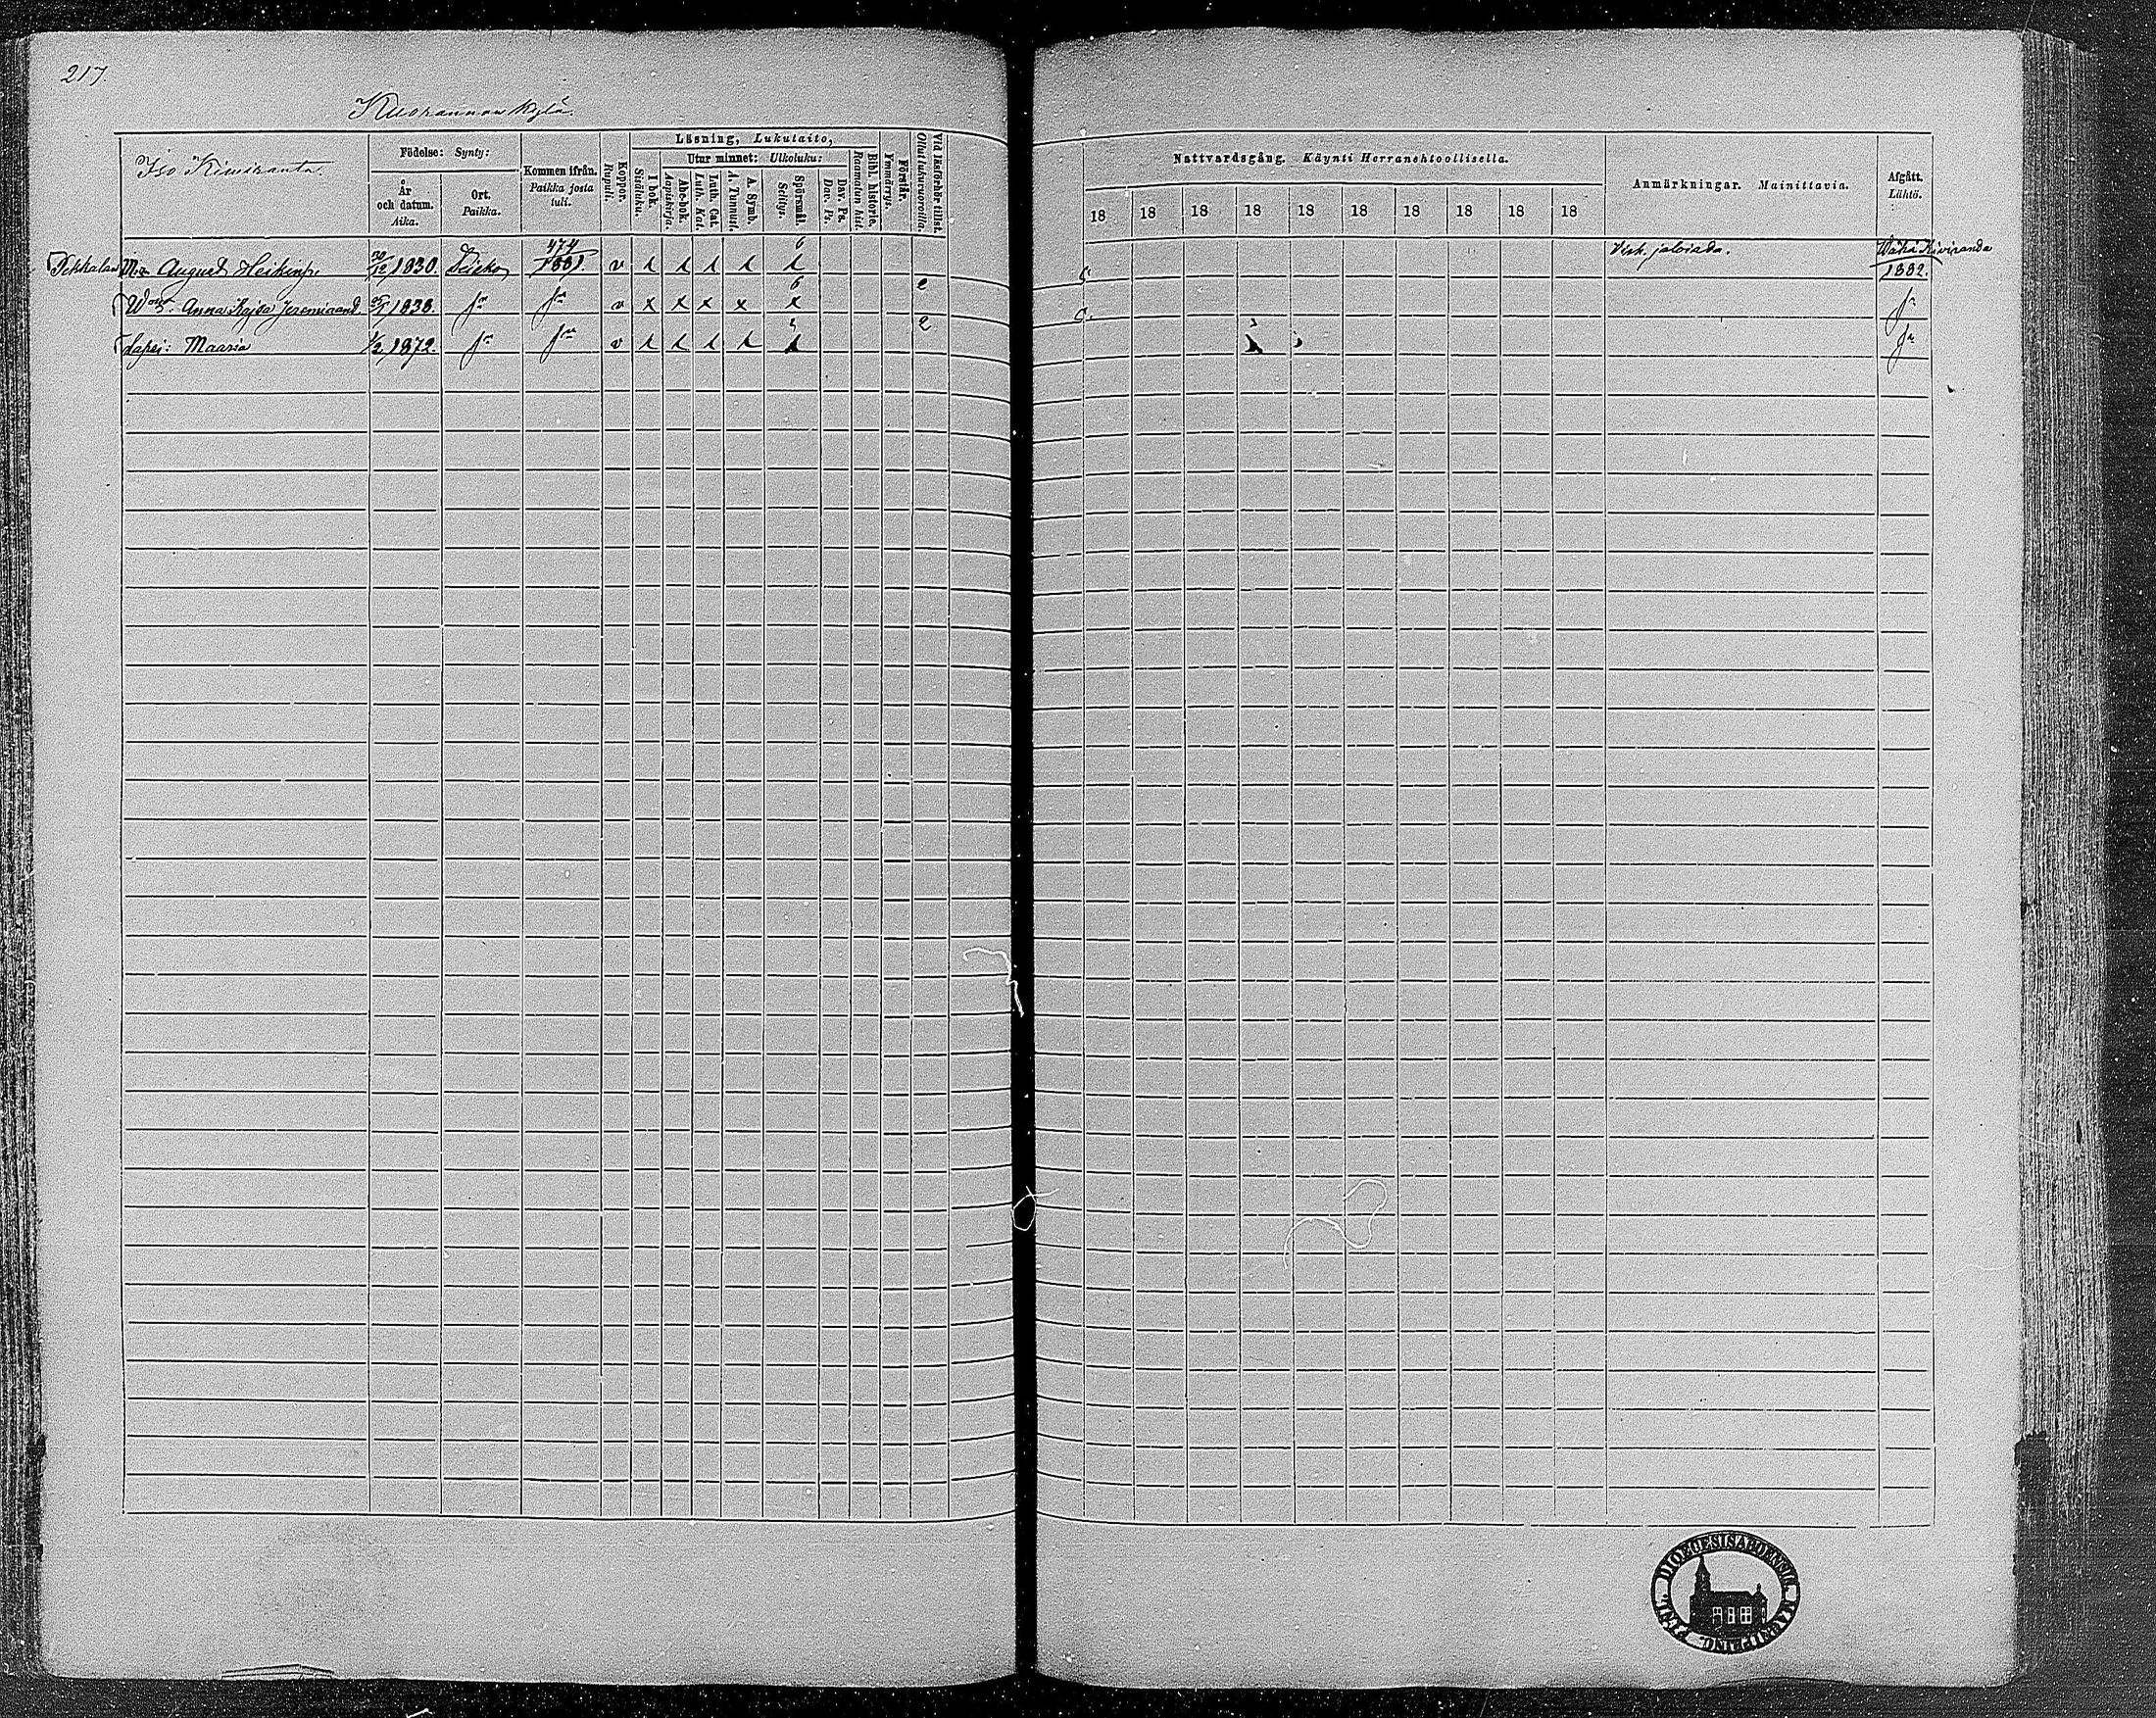 217.
Kuorannan kylä.
Iso Kiviranta.
Födelse: Synty:
År och datum. Aika.
Ort. Paikka.
Kommen ifrån. Paikka josta tuli.
Koppor. Rupuli.
Läsning, Lukutaito,
I bok. Sisäluku.
Utur minnet: Ulkoluku:
Abc-bok. Aapiskirja.
Luth. Cat. Luth. Kat.
A. Symb. A. Tunnust.
Spörsmål. Selitys.
Dav. Ps. Dav. Ps.
Bibl. historie. Raamatun hist.
Förstår. Ymmärrys.
Vid läsförhör tillst. Ollut lukuvuoroilla.
Nattvardsgång. Käynti Herranehtoollisella.
18 18 18 18 18 18 18 18 18 18
Anmärkningar. Mainittavia.
Afgått. Lähtö.
August Heikinp. 20/12 1830. 474 1881. v 6 1882.
Anna Kajsa Jeremiaand. 1838. v x x x x x 6
Lapsi: Maaria 1/2 1872. v
DIOECESIS ABOENSIS MAGNI PRINC. FINL.